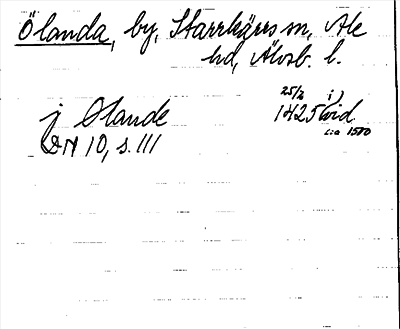 Ölanda, by, Starrkärrs sn, Ale
hd, Älvsb. l.
j Olande 25/2 1425 i) vid
c:a 1500
DN 10, s. 111